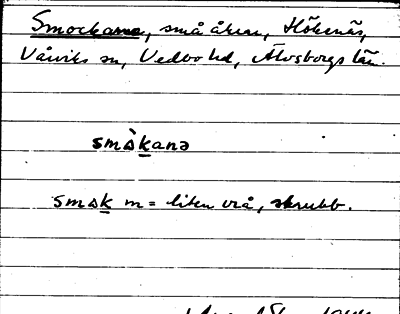 Smockarna, små åkrar, Hökenäs,
Vårviks sn, Vedbo hd, Älvsborgs län.
småkanə
smak m = liten vrå, skrubb.